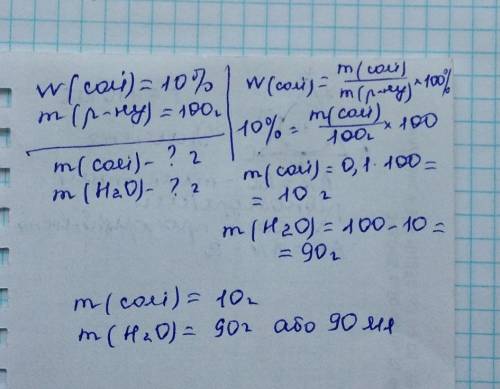 W(солі) = 10%
m(р-ну) = 100г
m(солі) - ? г
m(H₂O) - ? г
W(солі) = m(солі)/m(р-ну) × 100%
10% = m(солі)/100г × 100
m(солі) = 0,1 · 100 =
= 10 г
m(H₂O) = 100 - 10 =
= 90г
m(солі) = 10г
m(H₂O) = 90г або 90 мл